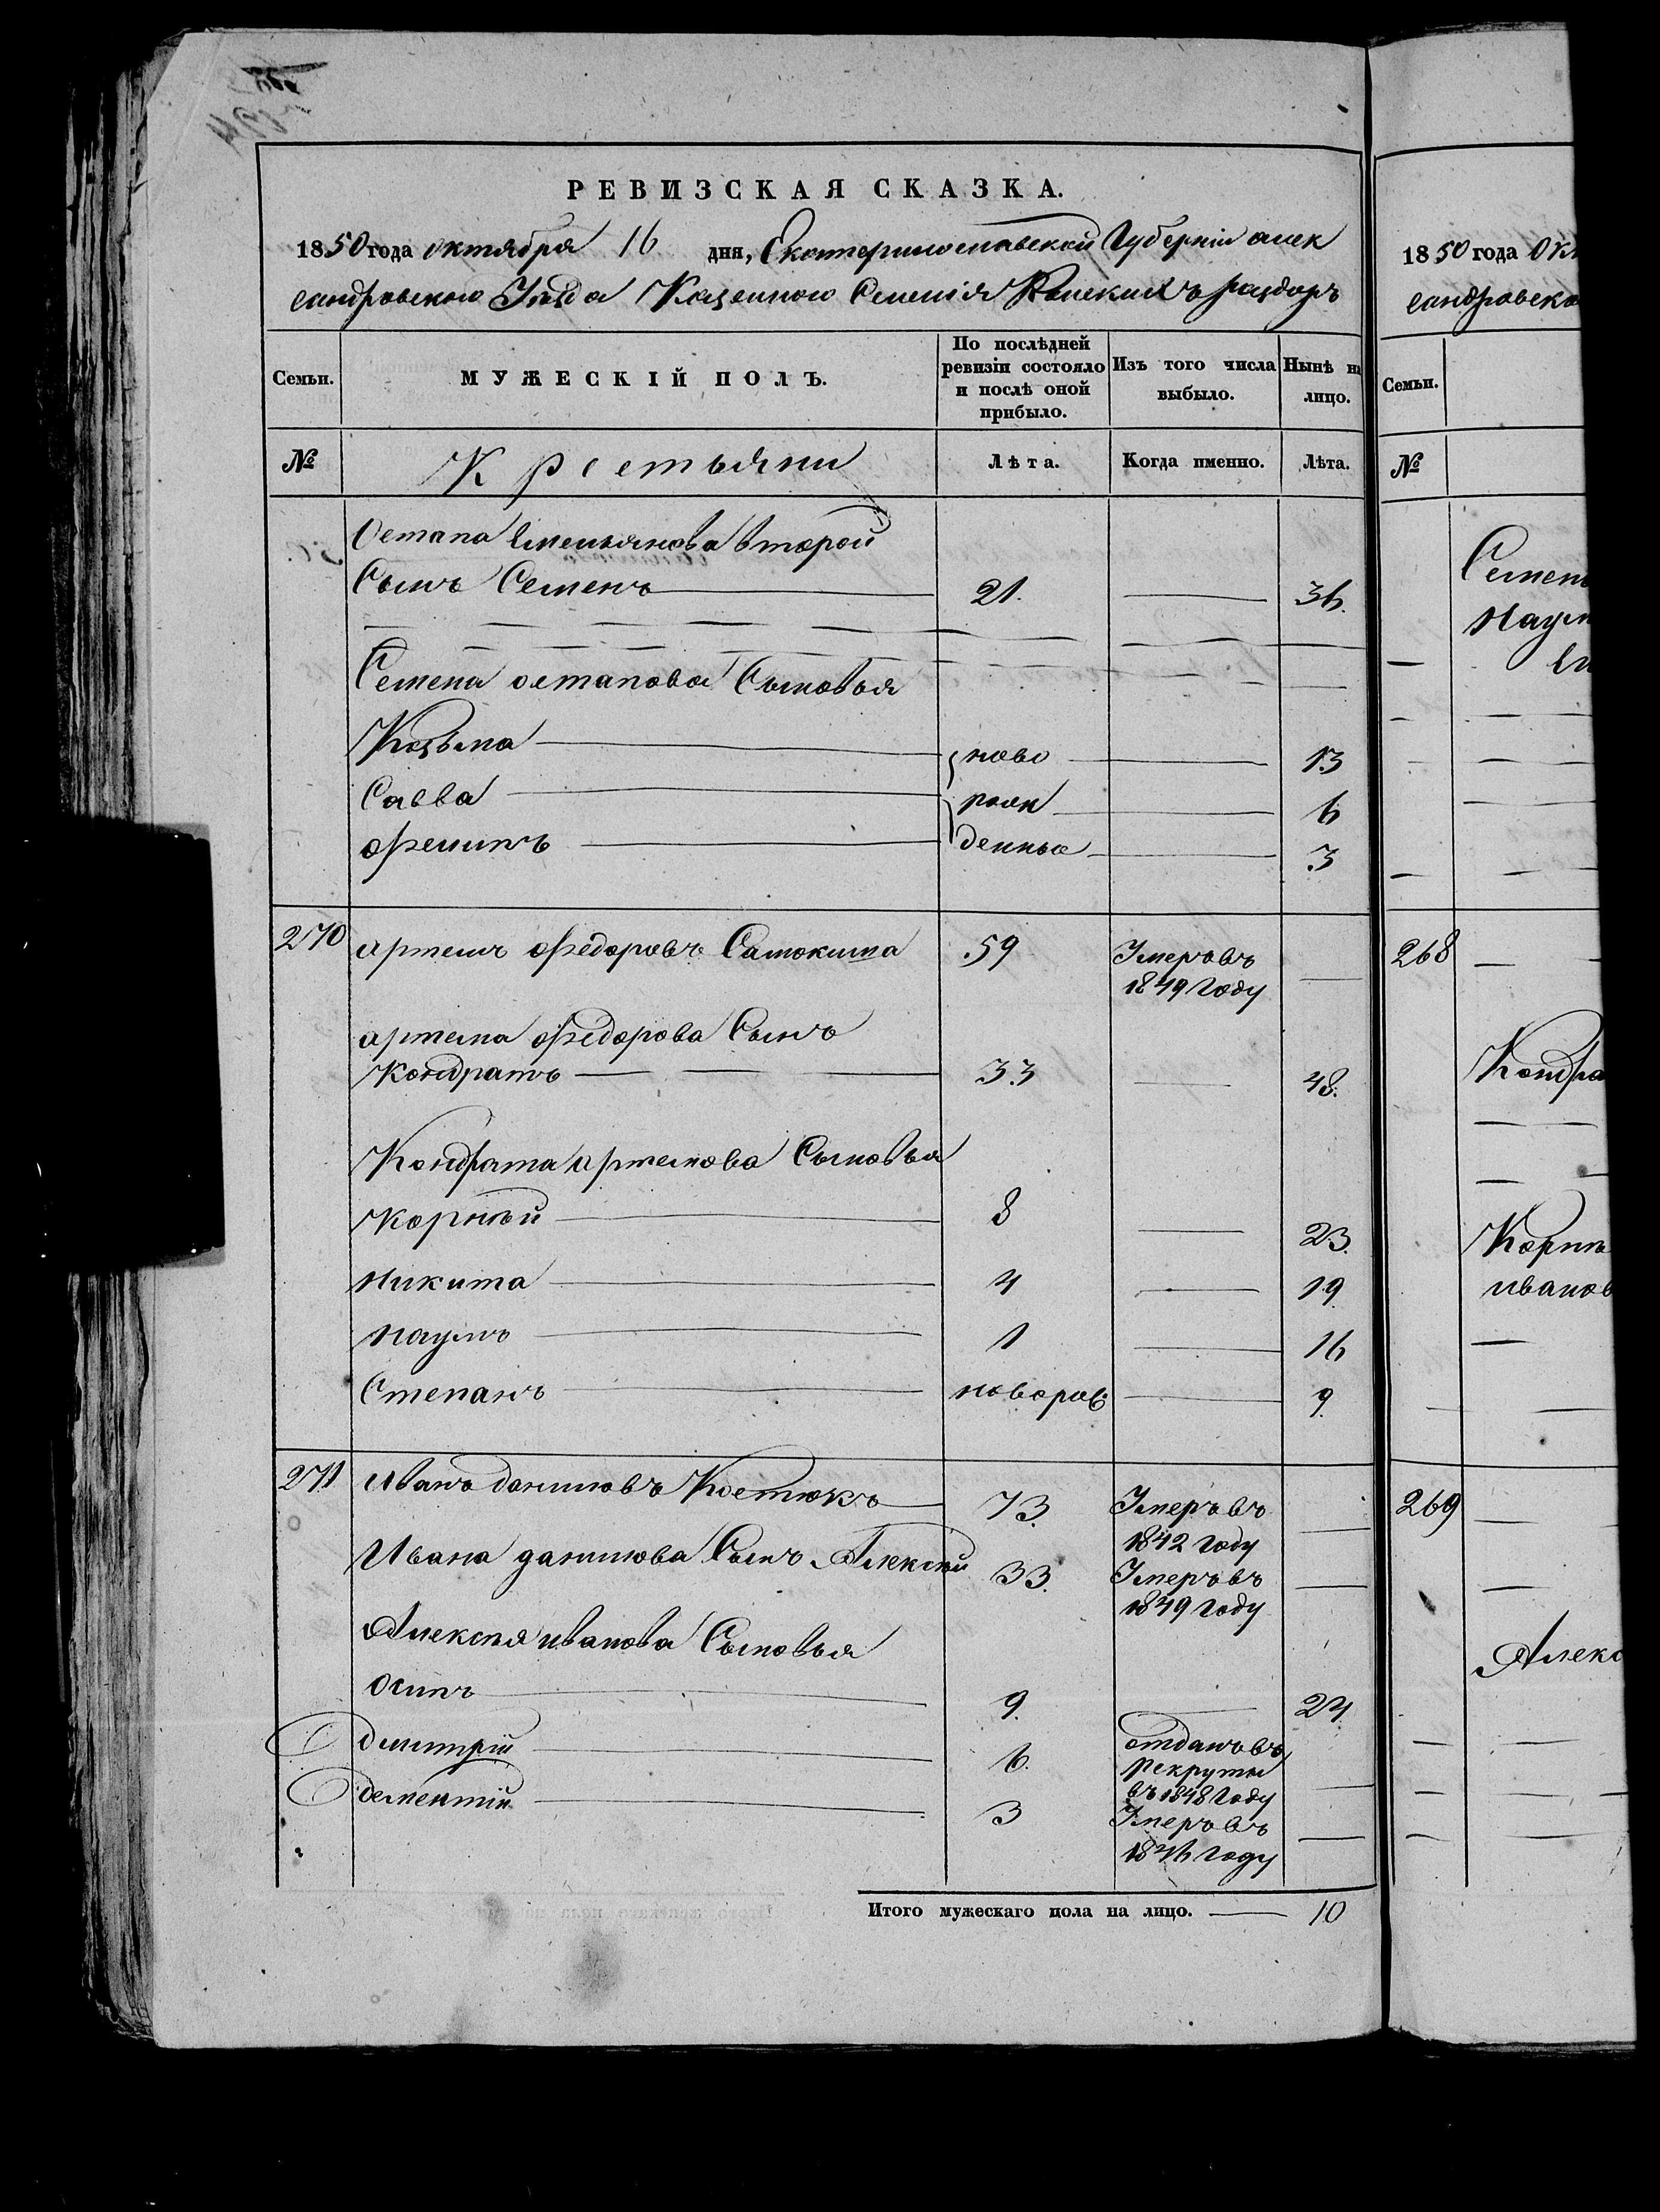 РЕВИЗСКАЯ СКАЗКА.
1850 года октября 16 дня, Екатеринославской Губерніи алек
сандровского Уѣзда Казенного Селенія Конскихъ раздоръ
Семьи.
МУЖЕСКІЙ ПОЛЪ.
По послѣдней ревизіи состояло и послѣ оной прибыло.
Изъ того числа выбыло.
Нынѣ на лицо.
№ Крестьяни Лѣта. Когда именно. Лѣта.
Остапа Емельянова второй
Сынъ Семенъ 21. 36.
Семена остапова Сыновья
Козьма ново 13
Савва рож 6
Филипъ денные 3
270 артемъ Федоровъ Самокиша 59 Умеръ въ
1849 Году
артема Федорова Сынъ
Кондратъ 33 48.
Кондрата артемова Сыновья
Корнѣй 8 23.
Никита 4 19
Наумъ 1 16
Степанъ новорож 9.
271 Иванъ даниловъ Костюкъ 73. Умеръ въ
1842 Году
Ивана данилова Сынъ Алексѣй 33. Умеръ въ
1849 Году
Алексѣя иванова Сыновья
Осипъ 9. 24.
дмитрій 6. отданъ въ
рекруты
въ 1848 Году
дементій 3 Умеръ въ
1846 Году
Итого мужескаго пола на лицо. 10
1850 года Ок
сандровско
Семьи.
№
Семен
Наум
268
Кондра
Корнѣ
иванов
269
Алекс